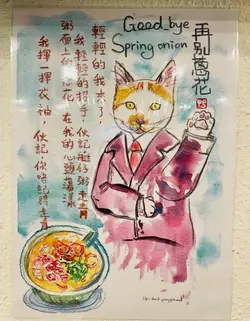 Good bye
Spring onion
再別蔥花
輕輕的我來了,
我輕輕的招手,伙記艇仔粥走青
粥面上的蔥花,在我的心頭蕩漾
我揮一揮衣袖 伙記,你唔記得走青